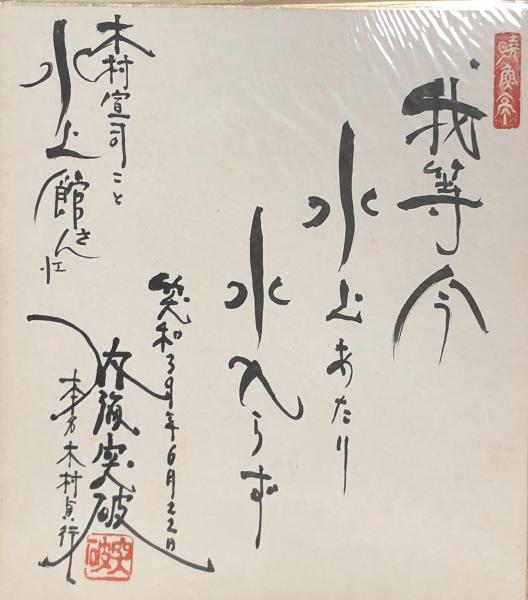 我等今
水上あたり
水入らず
笑和39年6月22日
木村宣司こと
水上館さん江
内海突破
本名木村貞行
突破